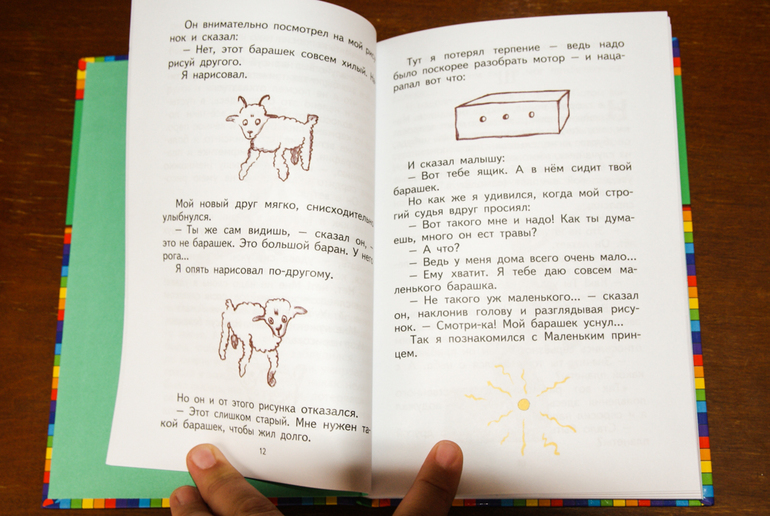 Он внимательно посмотрел на мой
нок и сказал:
— Нет, этот барашек совсем хилый.
рисуй другого.
Я нарисовал.
Мой новый друг мягко, снисходительно
улыбнулся.
— Ты же сам видишь, — сказал он, —
это не барашек. Это большой баран. У него
рога...
Я опять нарисовал по-другому.
Но он и от этого рисунка отказался.
— Этот слишком старый. Мне нужен та-
кой барашек, чтобы жил долго.
12
Тут я потерял терпение — ведь надо
было поскорее разобрать мотор — и наца-
рапал вот что:
И сказал малышу:
— Вот тебе ящик. А в нём сидит твой
барашек.
Но как же я удивился, когда мой стро-
гий судья вдруг просиял:
— Вот такого мне и надо! Как ты дума-
ешь, много он ест травы?
— А что?
— Ведь у меня дома всего очень мало...
— Ему хватит. Я тебе даю совсем ма-
ленького барашка.
— Не такого уж маленького... — сказал
он, наклонив голову и разглядывая рису-
нок. — Смотри-ка! Мой барашек уснул...
Так я познакомился с Маленьким прин-
цем.